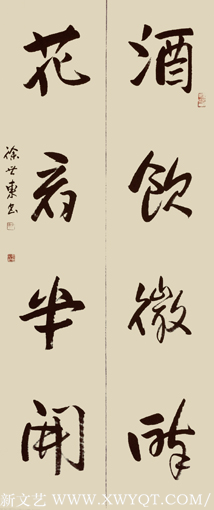 酒飲微醉
花看半開
徐世東書
新文艺 WWW.XWYQT.COM/